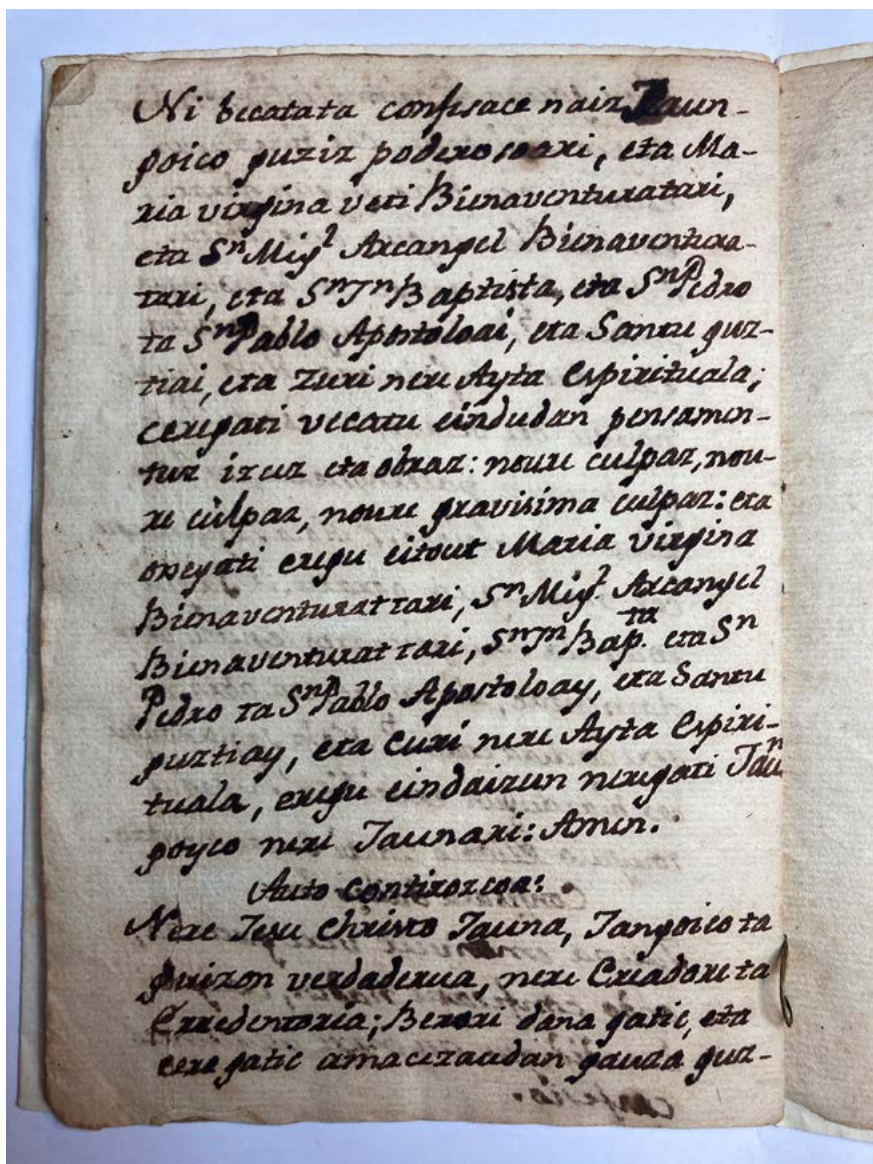 Ni becatata confesace naiz Jaun-
goico guziz poderosoari, eta Ma-
ria virgina veti Bienaventuratari,
eta Sn Migl Arcangel Bienaventura-
tari, eta Sn Jn Baptista, eta Sn Pedro
ta Sn Pablo Apostoloai, eta Santu guz-
tiai, eta Zuri nere Ayta Espirituala;
ceregati vecatu eindudan pensamen-
tuz itcez eta obraz: neure culpaz, neu-
re culpaz, neure gravisima culpaz: eta
orregati erregu eitout Maria virgina
Bienaventurattari, Sn Migl. Arcangel
Bienaventurattari, Sn Jn Bap.ta eta Sn
Pedro ta Sn Pablo Apostoloay, eta Santu
guztiay, eta Curi nere Ayta Espiri-
tuala, erregu eindaizun neregati Jaun
goyco nere Jaunari: Amen.
Auto Contriccoa:
Nere Jesu Christo Jauna, Jangoico ta
guizon verdaderua, nere Criadore ta
Erredentoria; Berori dana gatic, eta
cere gatic amacezaudan gauza guz-